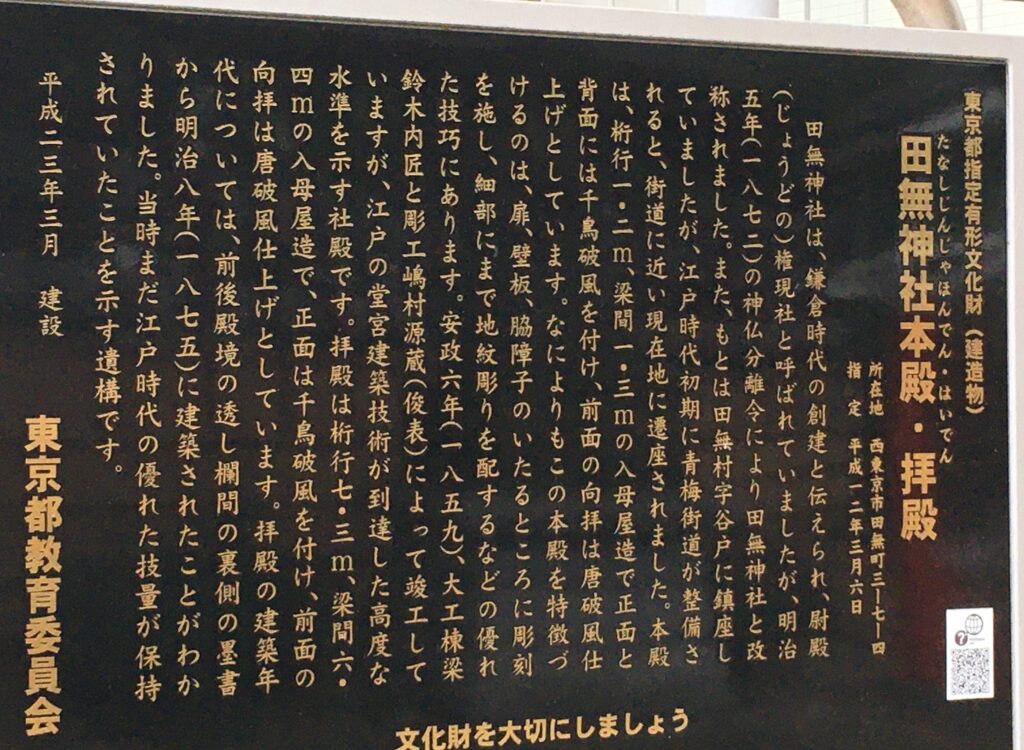 東京都指定有形文化財（建造物）
たなしじんじゃほんでん・はいでん
田無神社本殿・拝殿
所在地　西東京市田無町三ー七ー四
指　定　平成一二年三月六日
田無神社は、鎌倉時代の創建と伝えられ、尉殿
（じょうどの）権現社と呼ばれていましたが、明治
五年（一八七二）の神仏分離令により田無神社と改
称されました。また、もとは田無村字谷戸に鎮座し
ていましたが、江戸時代初期に青梅街道が整備さ
れると、街道に近い現在地に遷座されました。本殿
は、桁行一・二ｍ、梁間一・三ｍの入母屋造で正面と
背面には千鳥破風を付け、前面の向拝は唐破風仕
上げとしています。なによりもこの本殿を特徴づ
けるのは、扉、壁板、脇障子のいたるところに彫刻
を施し、細部にまで地紋彫りを配するなどの優れ
た技巧にあります。安政六年（一八五九）、大工棟梁
鈴木内匠と彫工嶋村源蔵（俊表）によって竣工して
いますが、江戸の堂宮建築技術が到達した高度な
水準を示す社殿です。拝殿は桁行七・三ｍ、梁間六・
四ｍの入母屋造で、正面は千鳥破風を付け、前面の
向拝は唐破風仕上げとしています。拝殿の建築年
代については、前後殿境の透し欄間の裏側の墨書
から明治八年（一八七五）に建築されたことがわか
りました。当時まだ江戸時代の優れた技量が保持
されていたことを示す遺構です。
平成二三年三月　建設
東京都教育委員会
文化財を大切にしましょう